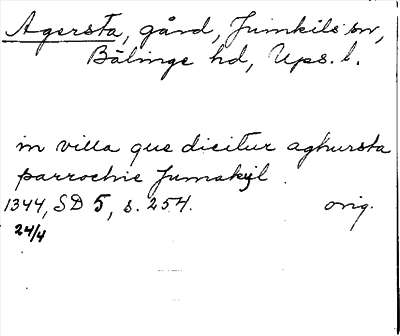 Agersta, gård, Jumkils sn,
Bälinge hd, Ups. l.
in villa que dicitur aghursta
parrochie Jumakyl.
1344, SD 5, s. 254. orig.
24/4